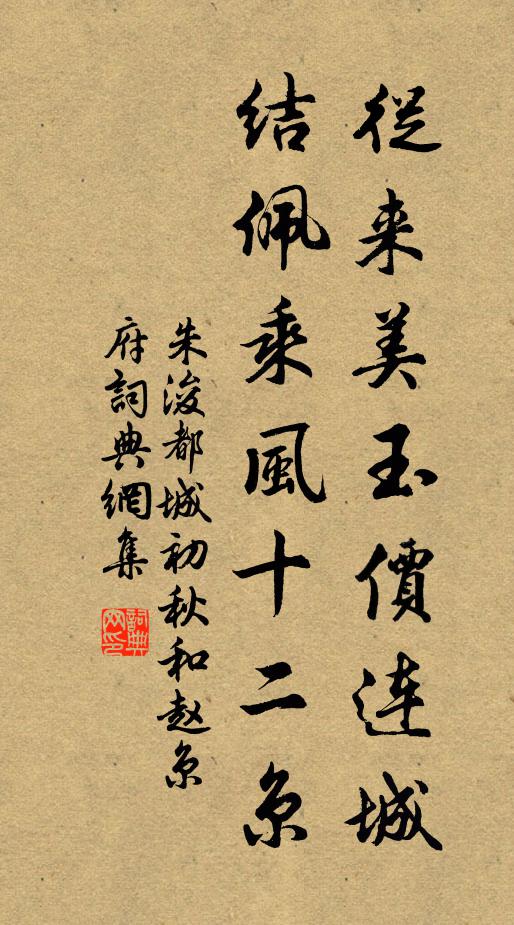 從来美玉價連城
結佩乘風十二京
朱浚都城初秋和赵京
府詞典網集
詞典
网印